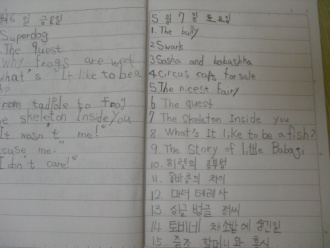 6일 금요일
Superdog
The quest
Why frogs are wet
what's "It like to be a
from tadpole to frog
he skeleton inside you
It wasn't me!"
cuse me!"
I don't care!"
5월 7일 토요일
1. The bully
2. Swark
3. Sasha and babushka
4. Circus caps for sale
5. The nicest fairy
6 The quest
7 The skeleton Inside you
8. What's It like to be a fish?
9. The Story of little Babaji
10.
11. 의 차이
12. 마더 테레사
13.
14. 토비네
15. 할머니와